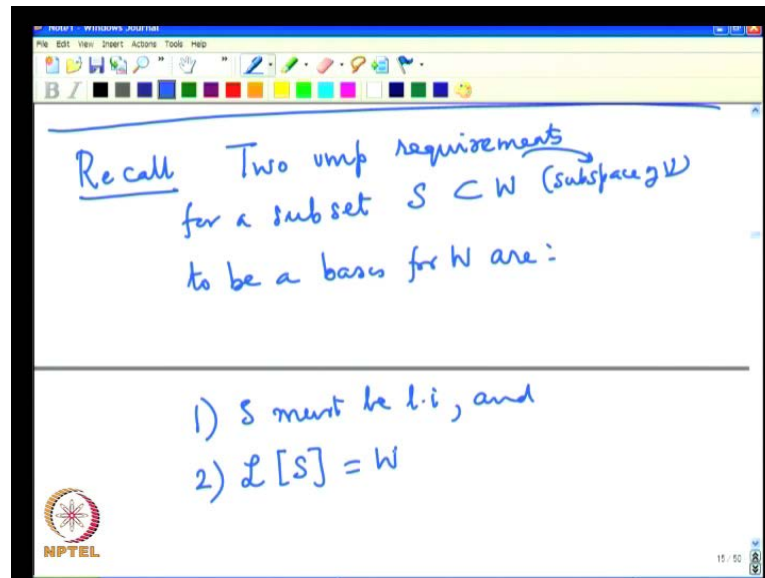 Note1 - Windows Journal
File Edit View Insert Actions Tools Help
B I
Recall Two imp requirements
for a subset S ⊂ W (subspace of V)
to be a basis for W are:
1) S must be l.i, and
2) L[S] = W
NPTEL
15 / 50